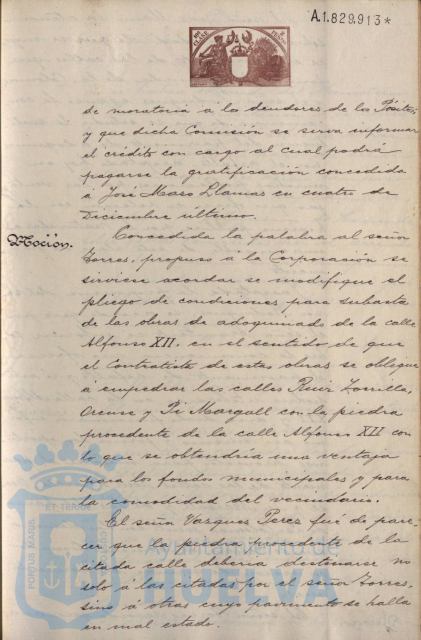 A.1.829.913*
de moratoria á los deudores de los Pósitos,
y que dicha Comisión se sirva informar
el crédito con cargo al cual podrá
pagarse la gratificación concedida
á José Maso Llamas en cuatro de
Diciembre último.
Moción.
Concedida la palabra al señor
Torres, propuso á la Corporación se
sirviese acordar se modifique el
pliego de condiciones para subasta
de las obras de adoquinado de la calle
Alfonso XII, en el sentido de que
el Contratista de estas obras se obligue
á empedrar las calles Ruiz Zorrilla,
Orense y Pi Margall con la piedra
procedente de la calle Alfonso XII con
lo que se obtendria una ventaja
para los fondos municipales y para
la comodidad del vecindario.
El señor Vazquez Perez fué de pare-
cer que la piedra procedente de la
citada calle debería destinarse no
solo á las citadas por el señor Torres,
sino á otras cuyo pavimento se halla
en mal estado.
PORTUS MARIS ET TERRAE
Ayuntamiento de
HUELVA